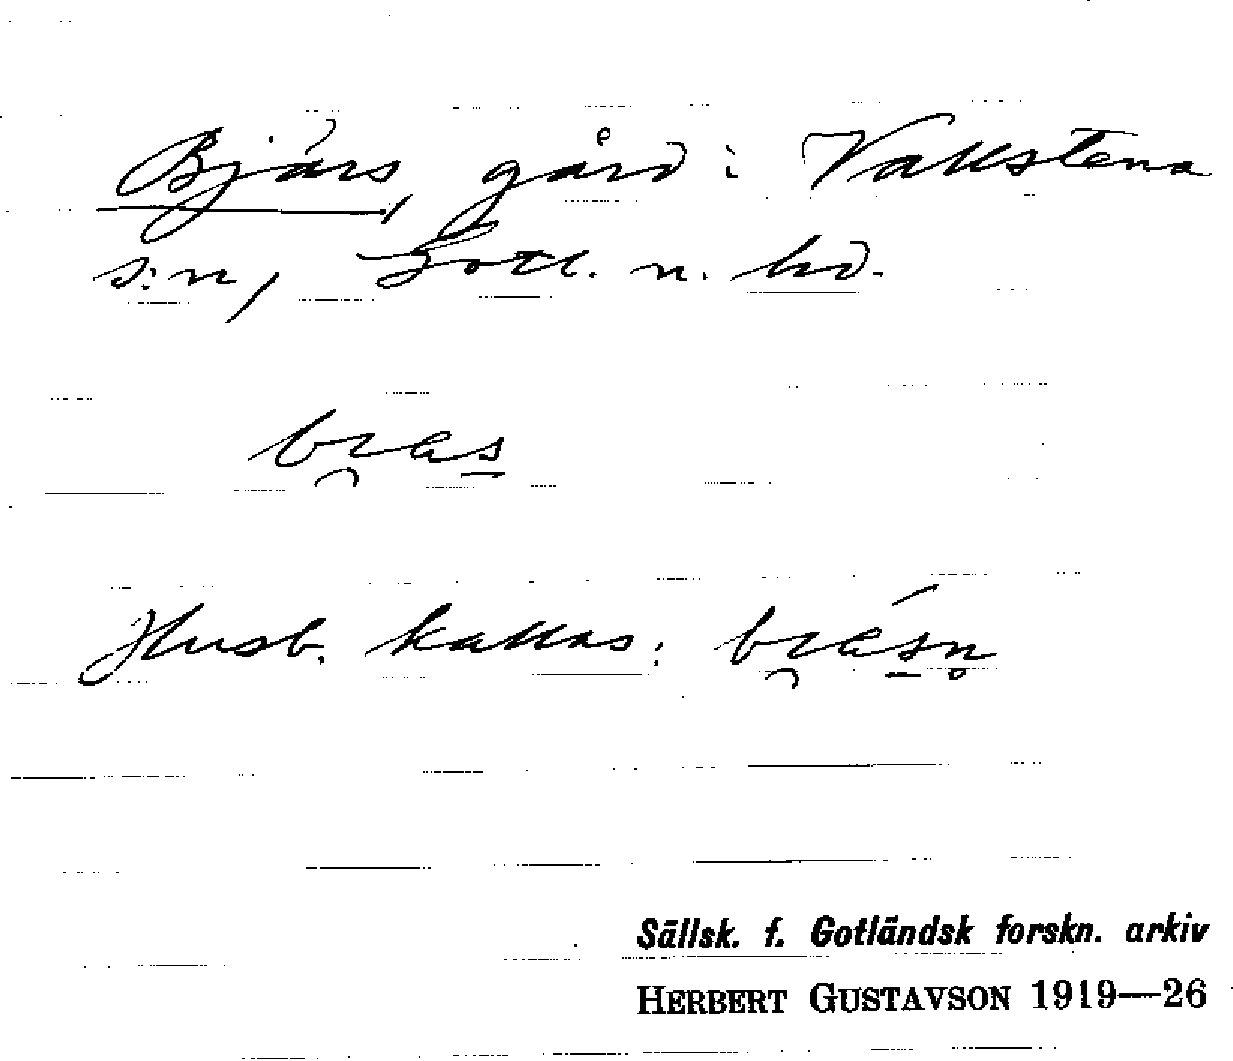 Bjärs, gård i Vallstena
s:n, Gotl. n. hd.
bi̯æs̠
Husb. kallas: bi̯ǽs̠n̥
Sällsk. f. Gotländsk forskn. arkiv
HERBERT GUSTAVSON 1919—26